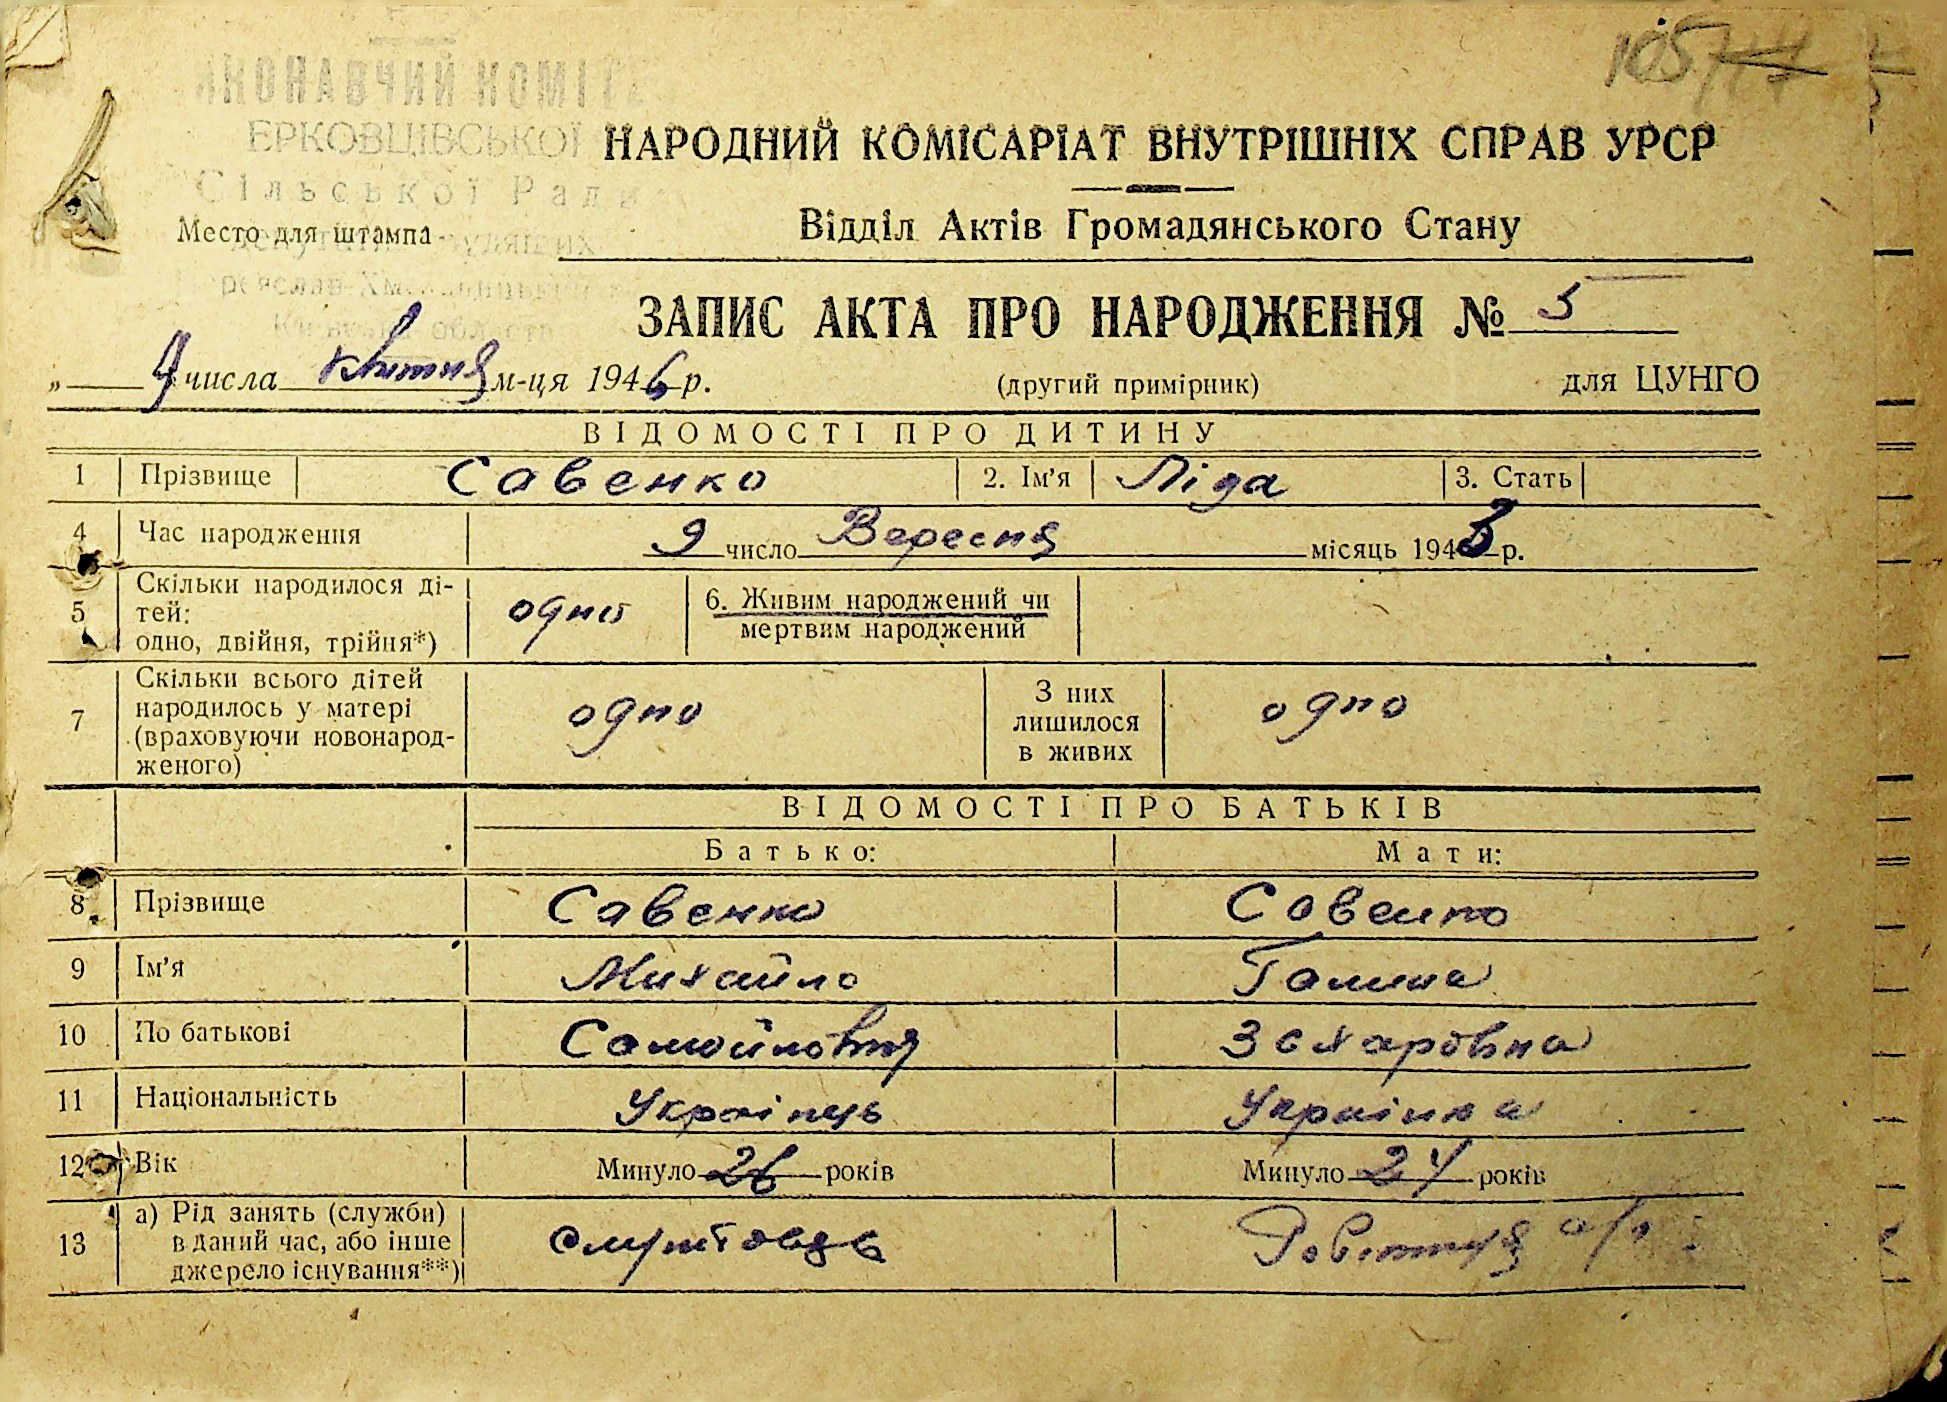 ВИКОНАВЧИЙ КОМІТЕТ
ЄРКОВЦІВСЬКОЇ
Сільської Ради
Место для штампа
НАРОДНИЙ КОМІСАРІАТ ВНУТРІШНІХ СПРАВ УРСР
Відділ Актів Громадянського Стану
ЗАПИС АКТА ПРО НАРОДЖЕННЯ № 5
„ 4 числа квітня м-ця 1946 р. (другий примірник) для ЦУНГО
ВІДОМОСТІ ПРО ДИТИНУ
1 Прізвище Савенко 2. Ім'я Ліда 3. Стать
4 Час народження 9 число Вересня місяць 1943 р.
5 Скільки народилося ді-
тей:
одно, двійня, трійня*) одно 6. Живим народжений чи
мертвим народжений
7 Скільки всього дітей
народилось у матері
(враховуючи новонарод-
женого) одно З них
лишилося
в живих одно
ВІДОМОСТІ ПРО БАТЬКІВ
Батько: Мати:
8 Прізвище Савенко Савенко
9 Ім'я Михайло Галина
10 По батькові Самойлович Захаровна
11 Національність Українць Українка
12 Вік Минуло 26 років Минуло 24 років
13 а) Рід занять (служби)
в даний час, або інше
джерело існування**)